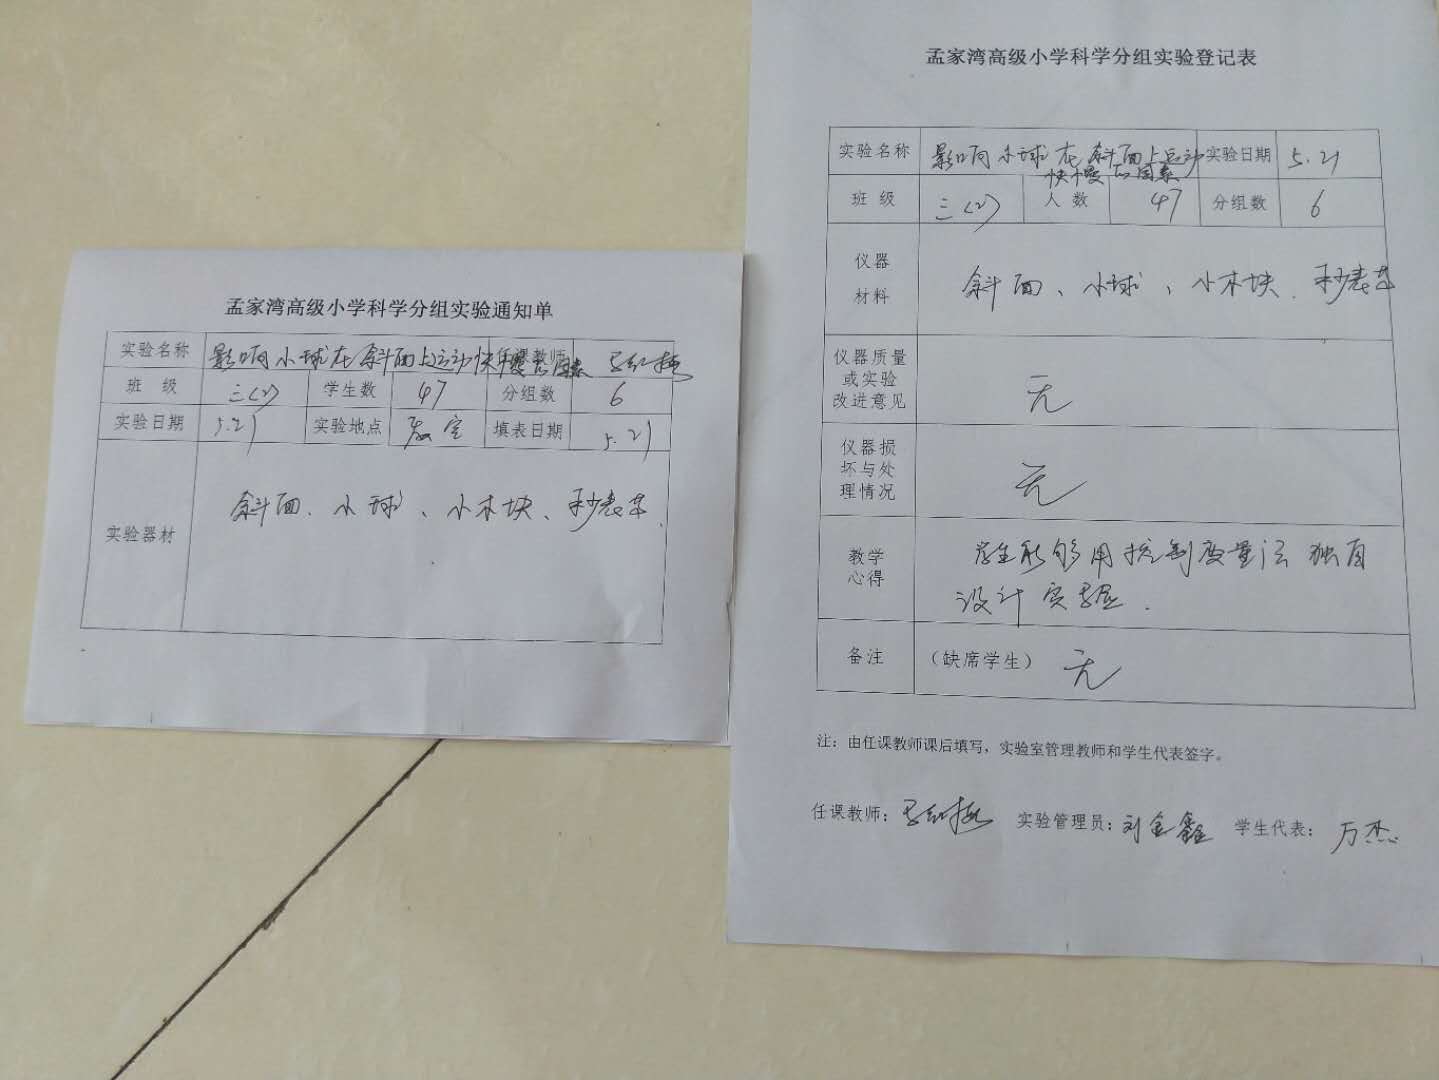 孟家湾高级小学科学分组实验通知单
实验名称 影响小球在斜面上运动快慢的因素 任课教师
班 级 三(2) 学生数 47 分组数 6
实验日期 5.21 实验地点 教室 填表日期 5.21
实验器材 斜面、小球、小木块、秒表等.
孟家湾高级小学科学分组实验登记表
实验名称 影响小球在斜面上运动 实验日期 5.21
快慢的因素
班 级 三(2) 人 数 47 分组数 6
仪器
材料
斜面、小球、小木块、秒表等
仪器质量
或实验
改进意见
无
仪器损
坏与处
理情况
无
教学
心得
学生能够用控制变量法独自
设计实验.
备注 (缺席学生) 无
注:由任课教师课后填写,实验室管理教师和学生代表签字。
任课教师: 实验管理员:刘金鑫 学生代表:万杰